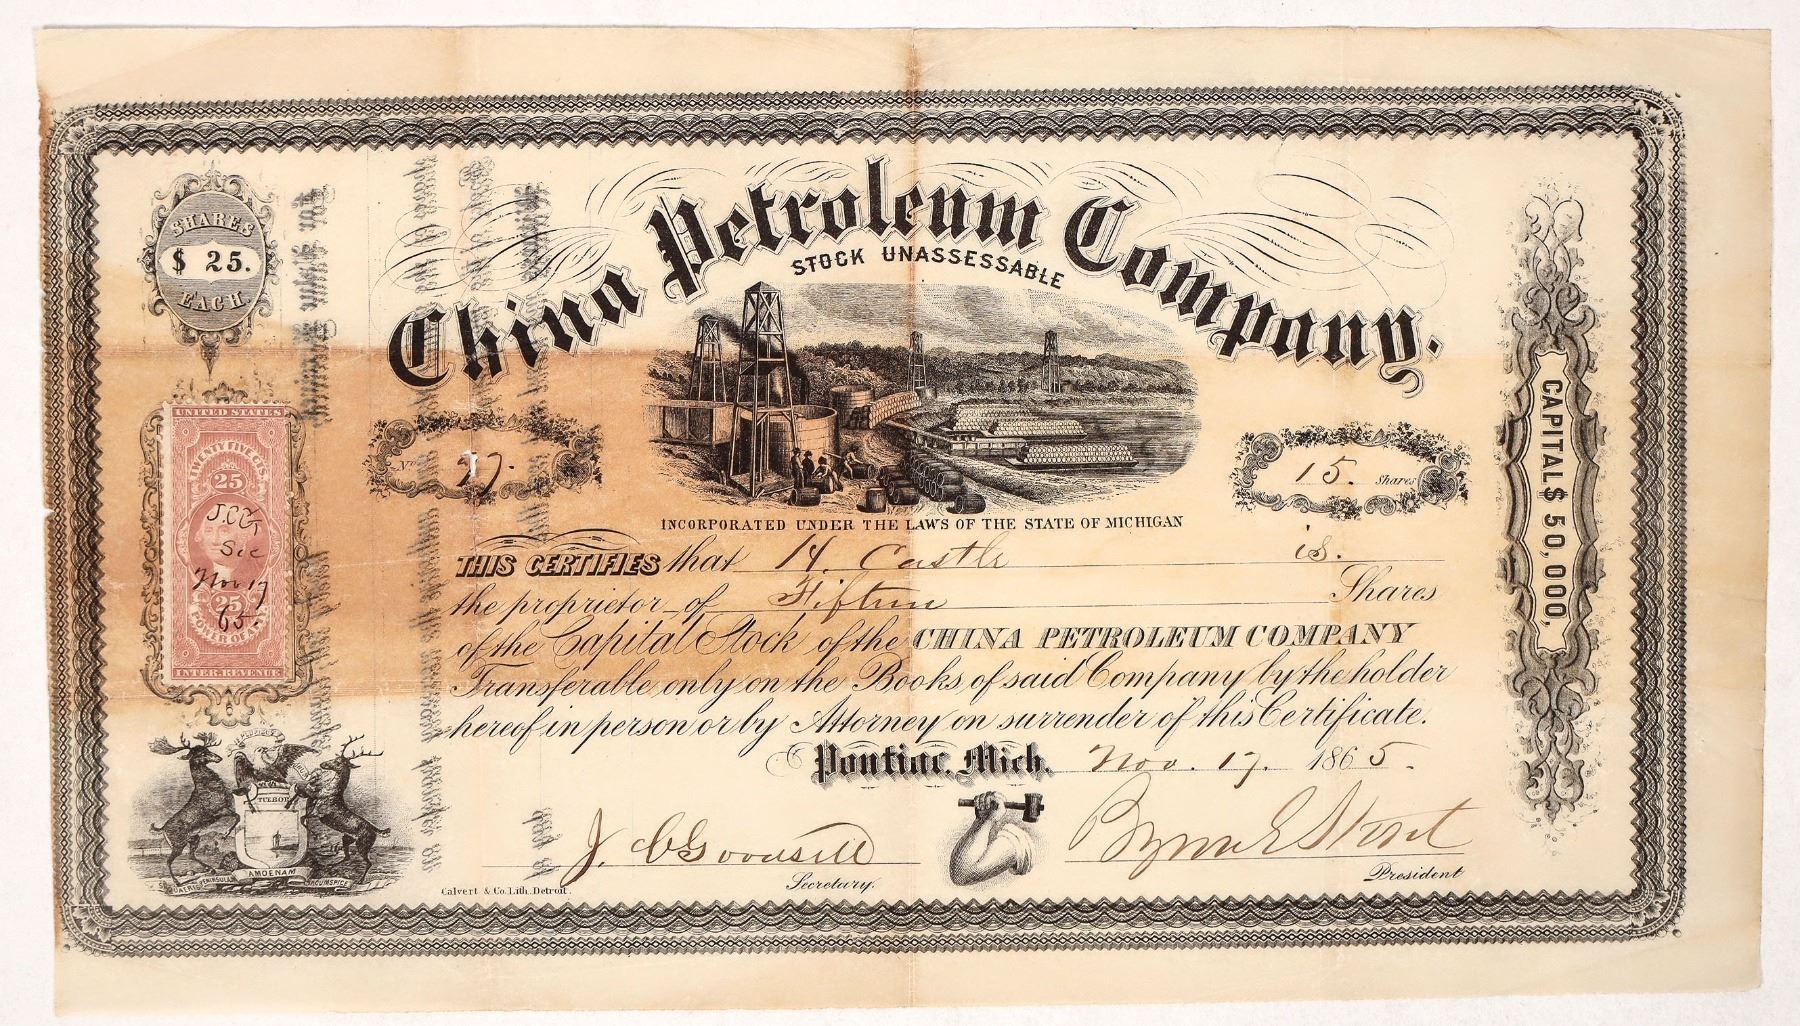 China Petroleum Company.
STOCK UNASSESSABLE
SHARES
$ 25.
EACH
UNITED STATES
TWENTY FIVE CTS.
25
J.C.G
Sec
Nov 17
65.
25
POWER OF
INTER. REVENUE
No. 97.
15. Shares
CAPITAL $ 50,000,
INCORPORATED UNDER THE LAWS OF THE STATE OF MICHIGAN
THIS CERTIFIES that H. Castle is.
the proprietor of Fifteen Shares
of the Capital Stock of the CHINA PETROLEUM COMPANY
Transferable only on the Books of said Company by the holder
hereof in person or by Attorney on surrender of this Certificate.
Pontiac, Mich. Nov. 17. 1865.
TUEBOR
AMOENAM
CIRCUMSPICE
J. C Goodsell
Secretary.
President
Calvert & Co. Lith. Detroit.